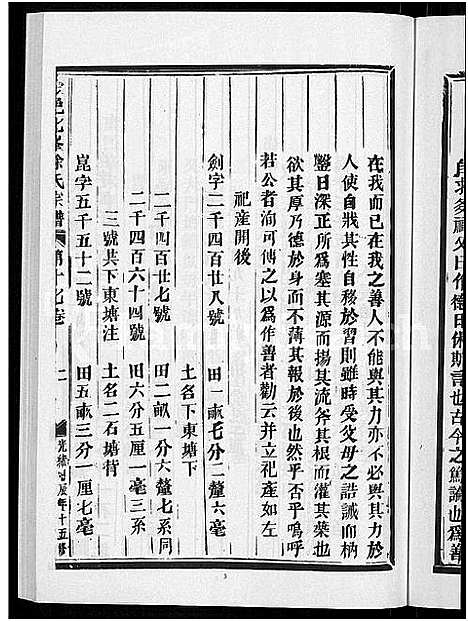 自求多福又曰作德日休斯言也古今之篤論也爲善
在我而已在我之善人不能與其力亦不必與其力於
人使自戕其性自移於習則雖時受父母之誥誡而枘
鑿日深正所爲塞其源而揚其流斧其根而灌其葉也
欲其厚乃德於身而不薄其報於後也然乎否乎嗚呼
若公者洵可傳之以爲作善者勸云并立祀產如左
祀產開後
劍字二千四百廿八號 田一畝七分二釐六毫
土名下東塘下
二千四百廿七號 田二畝一分六釐七系同
二千四百六十四號 田六分五厘一毫三系
三號其下東塘注 土名二石塘背
崑字五千五十二號 田五畝三分一厘七毫
徐氏宗譜 第十七卷 二 光緒 辰年十五修